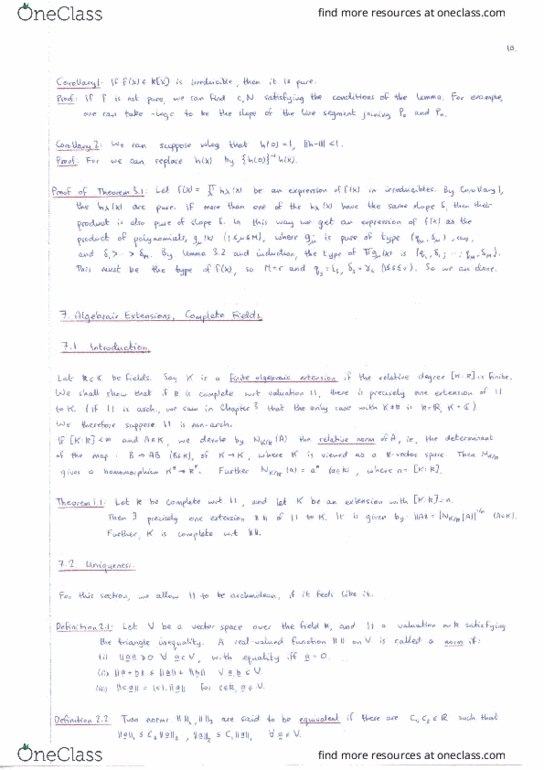 OneClass
find more resources at oneclass.com
10.
Corollary 1: If f(x) ∈ k[x] is irreducible, then it is pure.
Proof: If f is not pure, we can find c, N satisfying the conditions of the lemma. For example,
we can take -log c to be the slope of the line segment joining P₀ and Pₙ.
Corollary 2: We can suppose wlog that h(0)=1, ||h-1|| < 1.
Proof: For we can replace h(x) by {h(0)}⁻¹ h(x).
Proof of Theorem 3.1: Let f(x) = ∏ h_λ(x) be an expression of f(x) in irreducibles. By Corollary 1,
the h_λ(x) are pure. If more than one of the h_λ(x) have the same slope δ, then their
product is also pure of slope δ. In this way we get an expression of f(x) as the
product of polynomials, g_μ(x) (1≤μ≤M), where g_μ is pure of type (q_μ, δ_μ), say,
and δ₁ > ... > δ_M. By lemma 3.2 and induction, the type of ∏g_μ(x) is (q₁, δ₁; ...; q_M, δ_M).
This must be the type of f(x), so M=r and So we are done.
7. Algebraic Extensions, Complete Fields.
7.1 Introduction.
Let k ⊂ K be fields. Say K is a finite algebraic extension if the relative degree [K:k] is finite.
We shall show that if k is complete wrt valuation ||, there is precisely one extension of ||
to K. (If || is arch, we saw in Chapter 3 that the only case with K≠k is k=R, K=C)
We therefore suppose || is non-arch.
If [K:k] < ∞ and A∈K, we denote by N_{K/k}(A) the relative norm of A, ie, the determinant
of the map: B → AB (B∈K), of K→K, where K is viewed as a k-vector space. Then N_{K/k}
gives a homomorphism K* → k*. Further N_{K/k}(a) = aⁿ (a∈k), where n=[K:k].
Theorem 1.1: Let k be complete wrt ||, and let K be an extension with [K:k]=n.
Then ∃ precisely one extension || || of || to K. It is given by ||A|| = |N_{K/k}(A)|^{1/n} (A∈K).
Further, K is complete wrt || ||.
7.2 Uniqueness.
For this section, we allow || to be archimedean, if it feels like it.
Definition 2.1: Let V be a vector space over the field k, and || a valuation on k satisfying
the triangle inequality. A real valued function || || on V is called a norm if:
(i) ||a|| ≥ 0 ∀ a∈V, with equality iff a = 0.
(ii) ||a+b|| ≤ ||a|| + ||b|| ∀ a,b ∈ V.
(iii) ||ca|| = |c|.||a|| for c∈k, a∈V.
Definition 2.2: Two norms || ||₁, || ||₂ are said to be equivalent if there are C₁, C₂ ∈ R such that
||a||₁ ≤ C₂||a||₂, ||a||₂ ≤ C₁||a||₁ ∀ a∈V.
OneClass
find more resources at oneclass.com